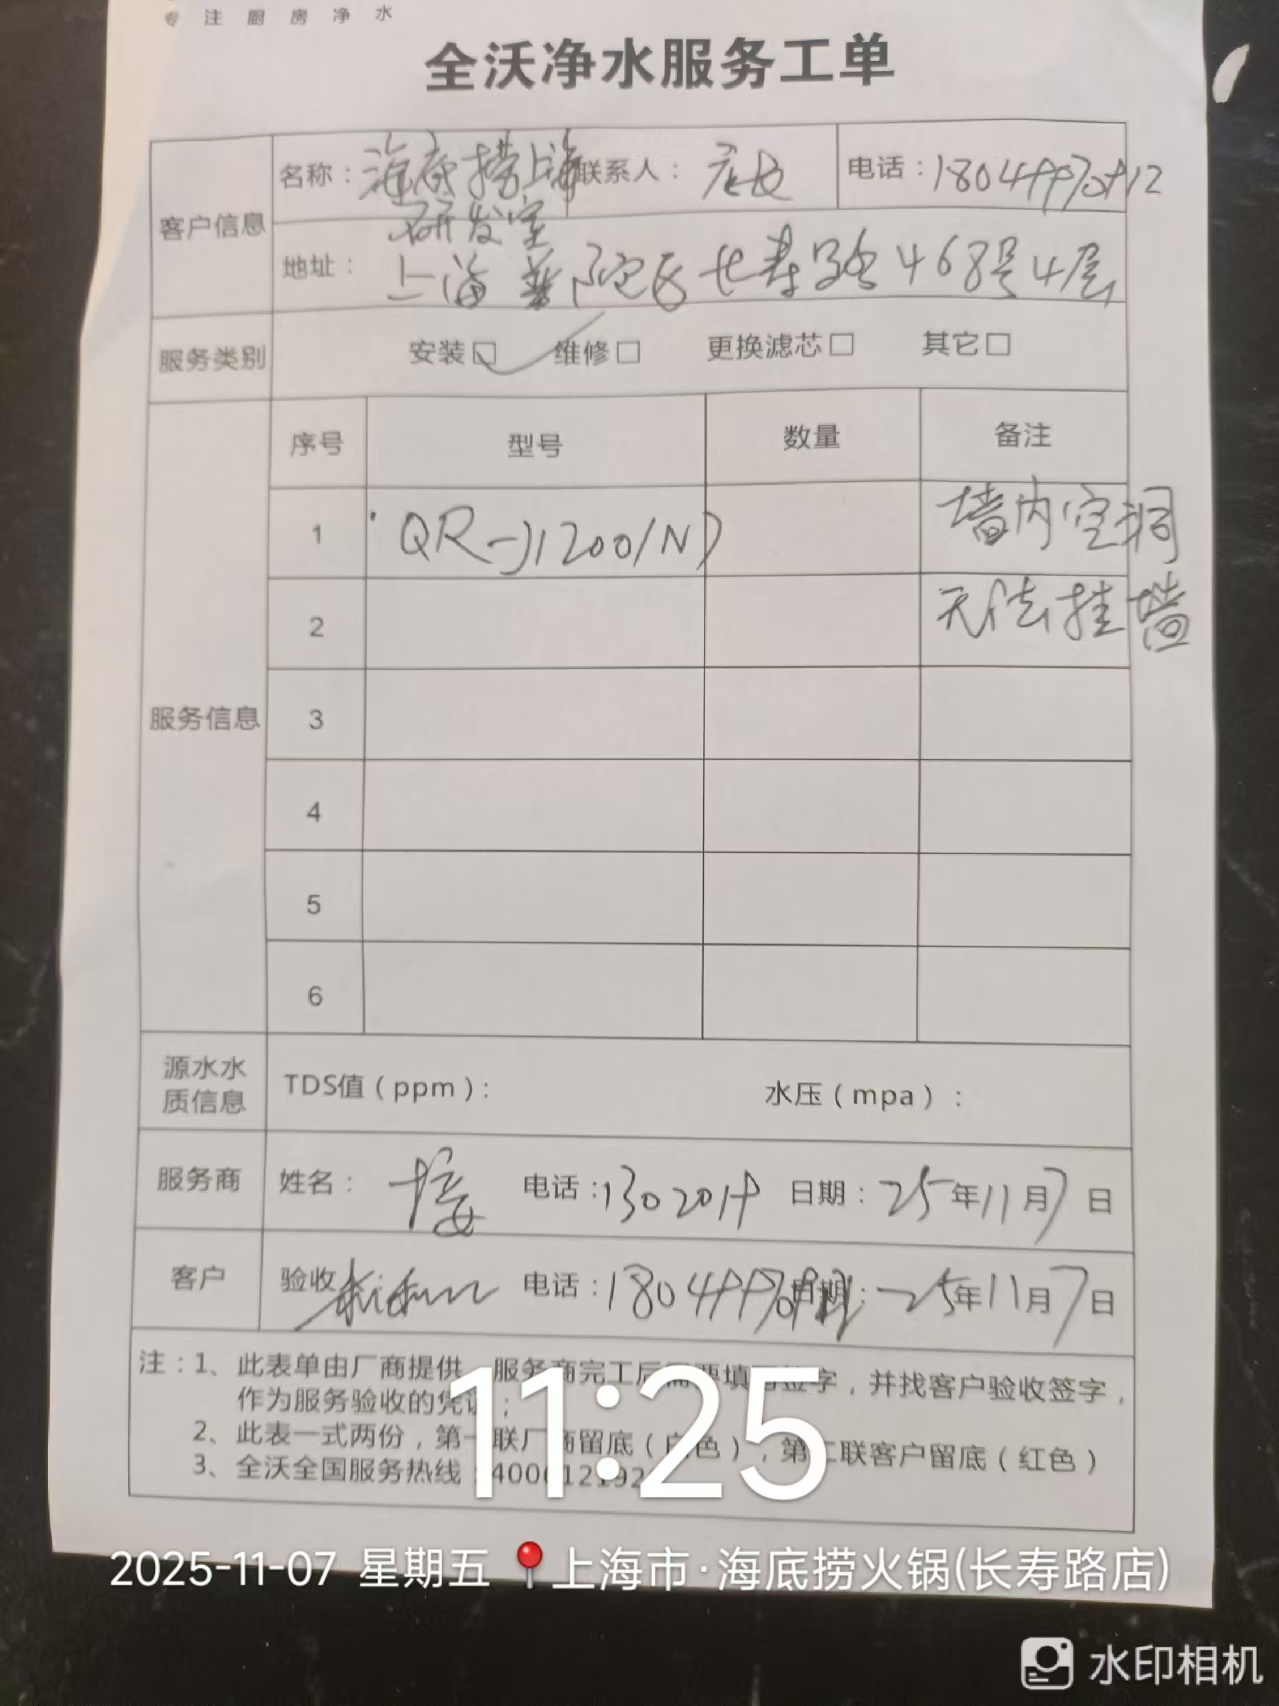 专注厨房净水
全沃净水服务工单
客户信息
名称：海底捞上海研发室 联系人：店长 电话：
地址：上海普陀区长寿路468号4层
服务类别 安装☑ 维修□ 更换滤芯□ 其它□
服务信息
序号 型号 数量 备注
1 QR-J1200/ND 墙内空洞
2 无法挂墙
3
4
5
6
源水水质信息 TDS值（ppm）： 水压（mpa）：
服务商 姓名： 电话： 日期：25年11月7日
客户 验收 电话： 日期：25年11月7日
注：1、此表单由厂商提供，服务商完工后需要填写签字，并找客户验收签字，
作为服务验收的凭证；
2、此表一式两份，第一联厂商留底（白色），第二联客户留底（红色）
3、全沃全国服务热线：
11:25
2025-11-07 星期五 上海市·海底捞火锅(长寿路店)
水印相机